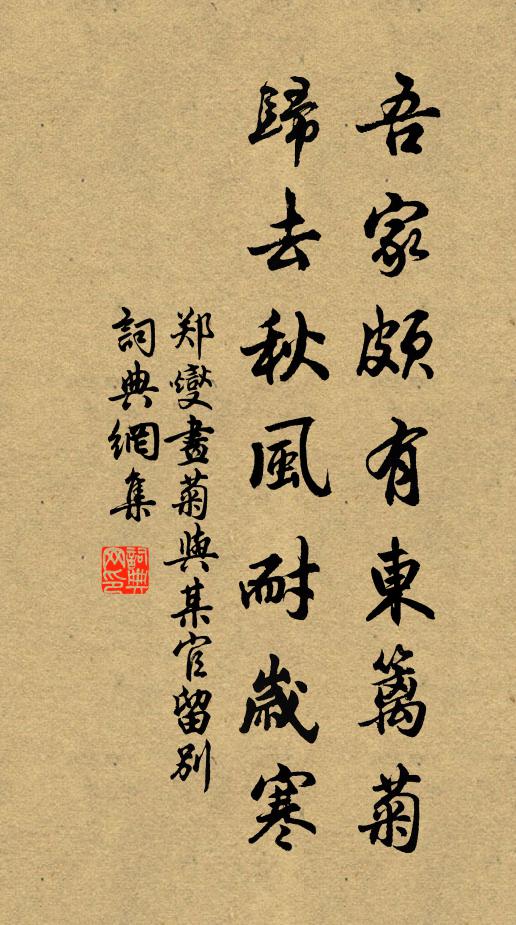 吾家頗有東籬菊
歸去秋風耐歲寒
郑燮畫菊與某官留别
詞典網集
詞典網印